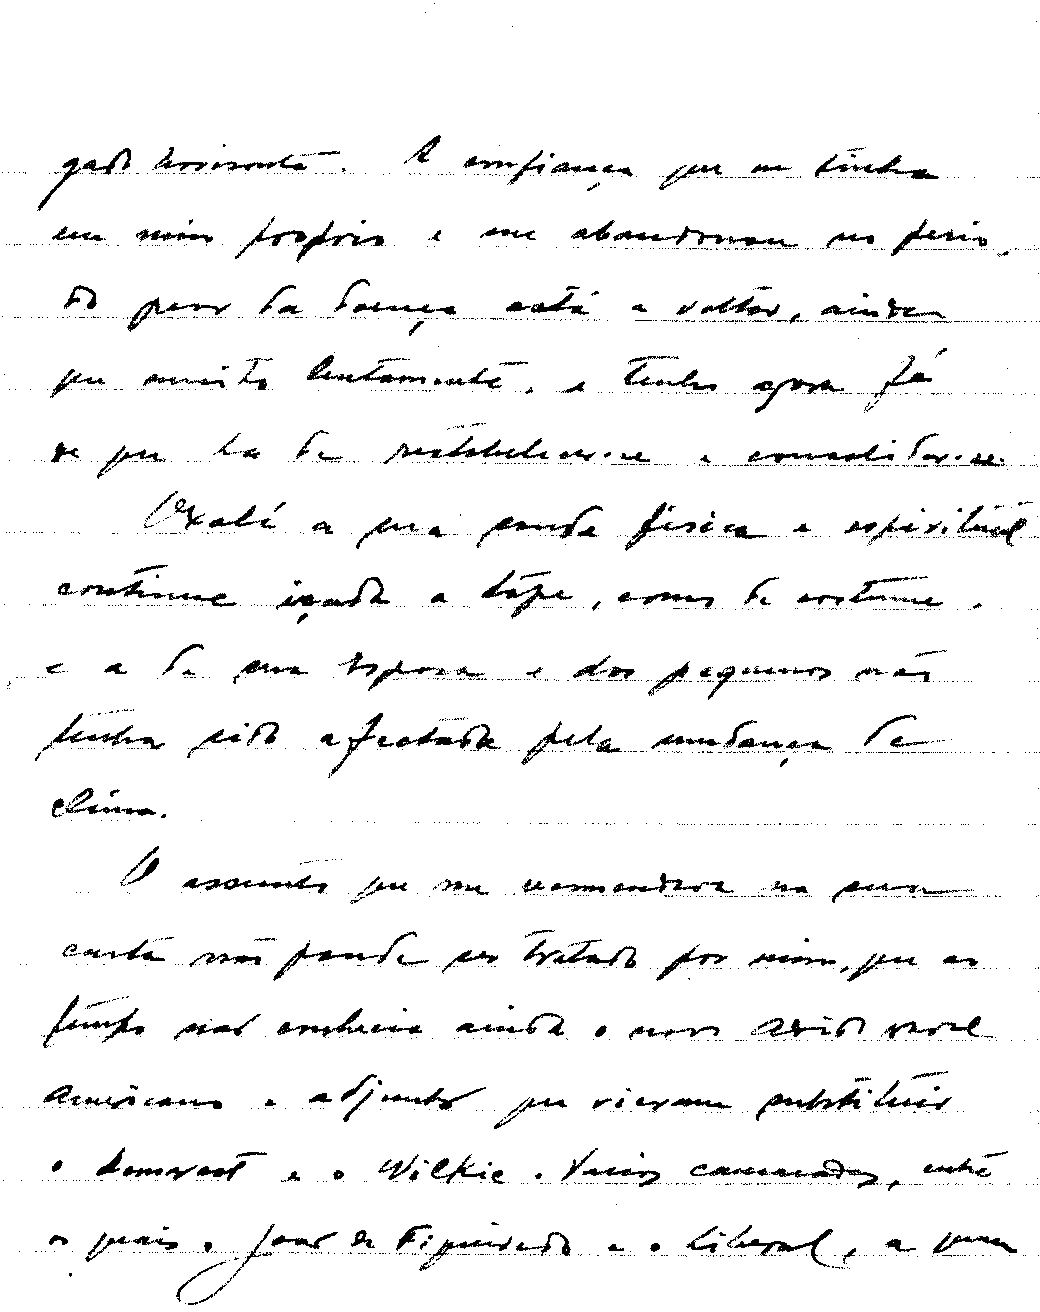 gado horisonte. A confiança que eu tinha
em mim proprio e me abandonou no perio-
do peor da doença está a voltar, ainda
que muito lentamente, e tenho agora fé
de que ha de restabelecer-se e consolidar-se.
Oxalá a sua saude fisica e espiritual
continue içada a tópe, como de costume,
e a de sua esposa e dos pequenos não
tenha sido afectada pela mudança de
clima.
O assunto que me recomendava na sua
carta não poude ser tratado por mim, que ao
tempo não conhecia ainda o novo adido naval
americano e adjunto que vieram substituir
o Demarest e o Wilkie. Varios camaradas, entre
os quais o João de Figueiredo e o Liberal, a quem